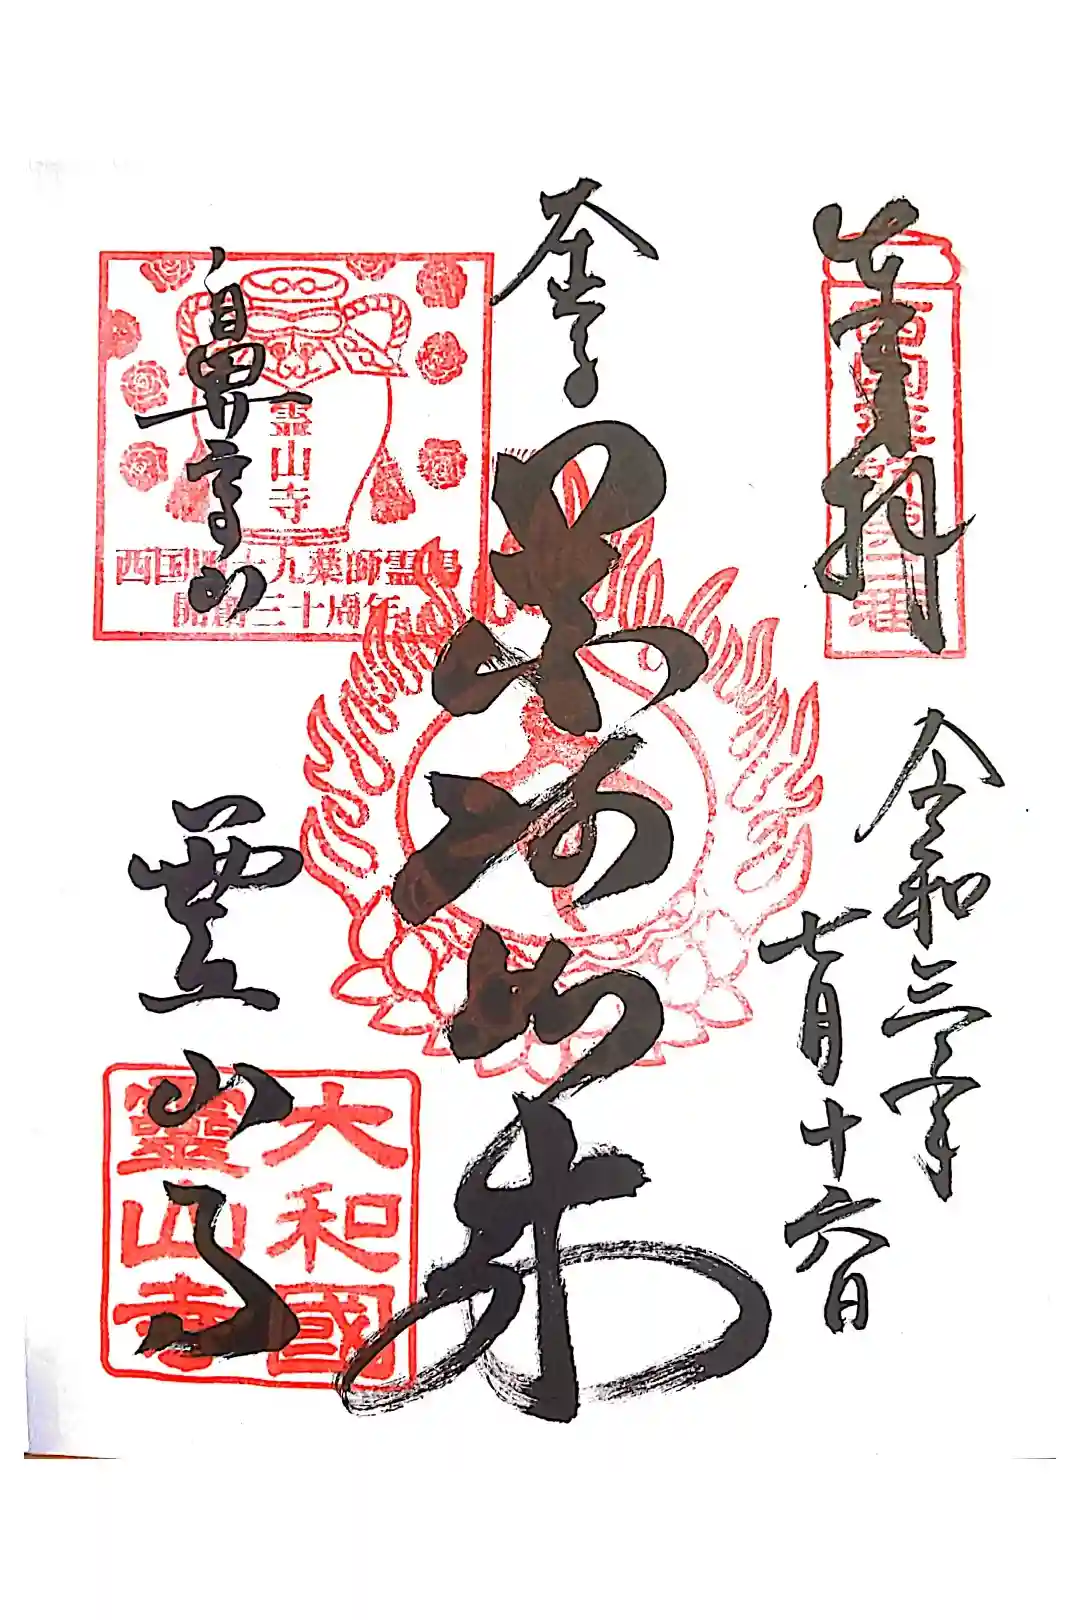 奉拝
西国薬師第二番
令和三年
七月十六日
薬師如来
鼻高山
霊山寺
西国四十九薬師霊場
開創三十周年
霊山寺
大和國
靈山寺